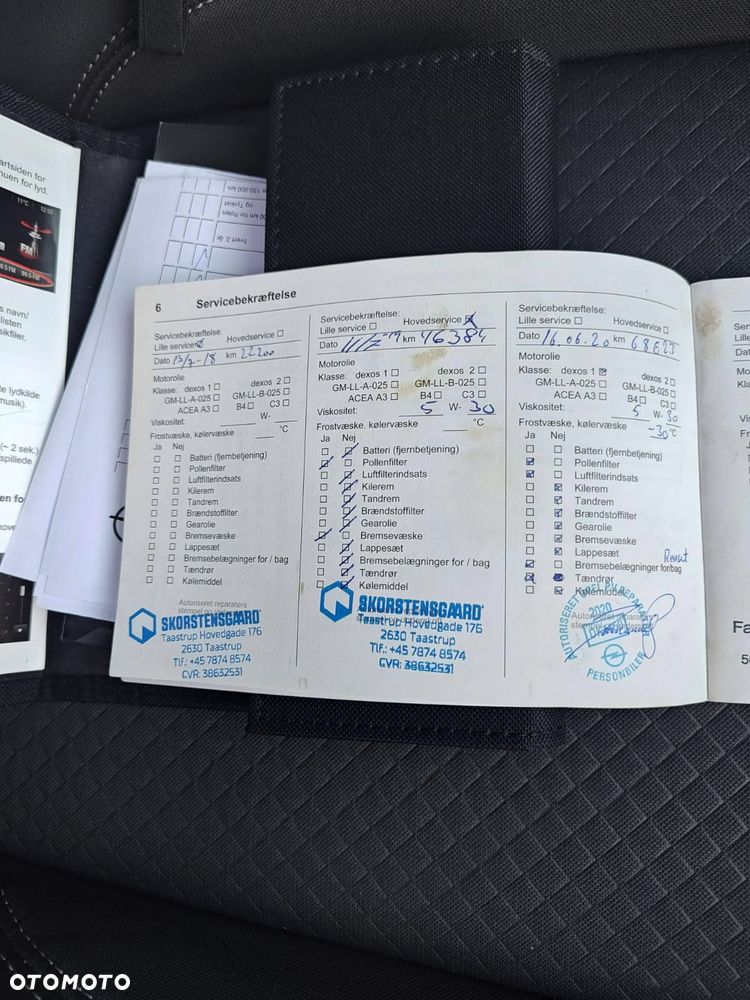 artsiden for
nuen for lyd.
11°C
12:00
FM
99.5 FM
s navn/
listen
sikfiler,
lydkilde
musik).
(~ 2 sek.)
spillede
en for
150 000 km
00 km for Rusland
og Tyrkiet
hvert 2. år
6 Servicebekræftelse
Servicebekræftelse:
Lille service Hovedservice
Dato 13/7-18 km 22200
Motorolie
Klasse: dexos 1 dexos 2
GM-LL-A-025 GM-LL-B-025
ACEA A3 B4 C3
Viskositet: W-
Frostvæske, kølervæske °C
Ja Nej
Batteri (fjernbetjening)
Pollenfilter
Luftfilterindsats
Kilerem
Tandrem
Brændstoffilter
Gearolie
Bremsevæske
Lappesæt
Bremsebelægninger for / bag
Tændrør
Kølemiddel
Autoriseret reparatørs
SKORSTENSGAARD
Taastrup Hovedgade 176
2630 Taastrup
Tlf.: +45 7874 8574
CVR: 38632531
Servicebekræftelse:
Lille service Hovedservice
Dato 11/7-19 km 46384
Motorolie
Klasse: dexos 1 dexos 2
GM-LL-A-025 GM-LL-B-025
ACEA A3 B4 C3
Viskositet: 5 W- 30
Frostvæske, kølervæske °C
Ja Nej
Batteri (fjernbetjening)
Pollenfilter
Luftfilterindsats
Kilerem
Tandrem
Brændstoffilter
Gearolie
Bremsevæske
Lappesæt
Bremsebelægninger for / bag
Tændrør
Kølemiddel
SKORSTENSGAARD
Taastrup Hovedgade 176
2630 Taastrup
Tlf.: +45 7874 8574
CVR: 38632531
Servicebekræftelse:
Lille service Hovedservice
Dato 16.06.20 km 68623
Motorolie
Klasse: dexos 1 dexos 2
GM-LL-A-025 GM-LL-B-025
ACEA A3 B4 C3
Viskositet: 5 W- 30
Frostvæske, kølervæske -30 °C
Ja Nej
Batteri (fjernbetjening)
Pollenfilter
Luftfilterindsats
Kilerem
Tandrem
Brændstoffilter
Gearolie
Bremsevæske
Lappesæt
Renset
Bremsebelægninger for/bag
Tændrør
Kølemiddel
2020
PERSONBILER
Fa
OTOMOTO